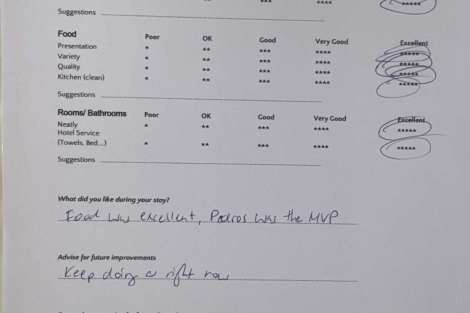 ** *** **** *****
Suggestions
Food Poor OK Good Very Good Excellent
Presentation * ** *** **** *****
Variety * ** *** **** *****
Quality * ** *** **** *****
Kitchen (clean) * ** *** **** *****
Suggestions
Rooms/ Bathrooms Poor OK Good Very Good Excellent
Neatly * ** *** **** *****
Hotel Service
(Towels, Bed...) * ** *** **** *****
Suggestions
What did you like during your stay?
Food was excellent, Pedros was the MVP
Advise for future improvements
Keep doing a right now